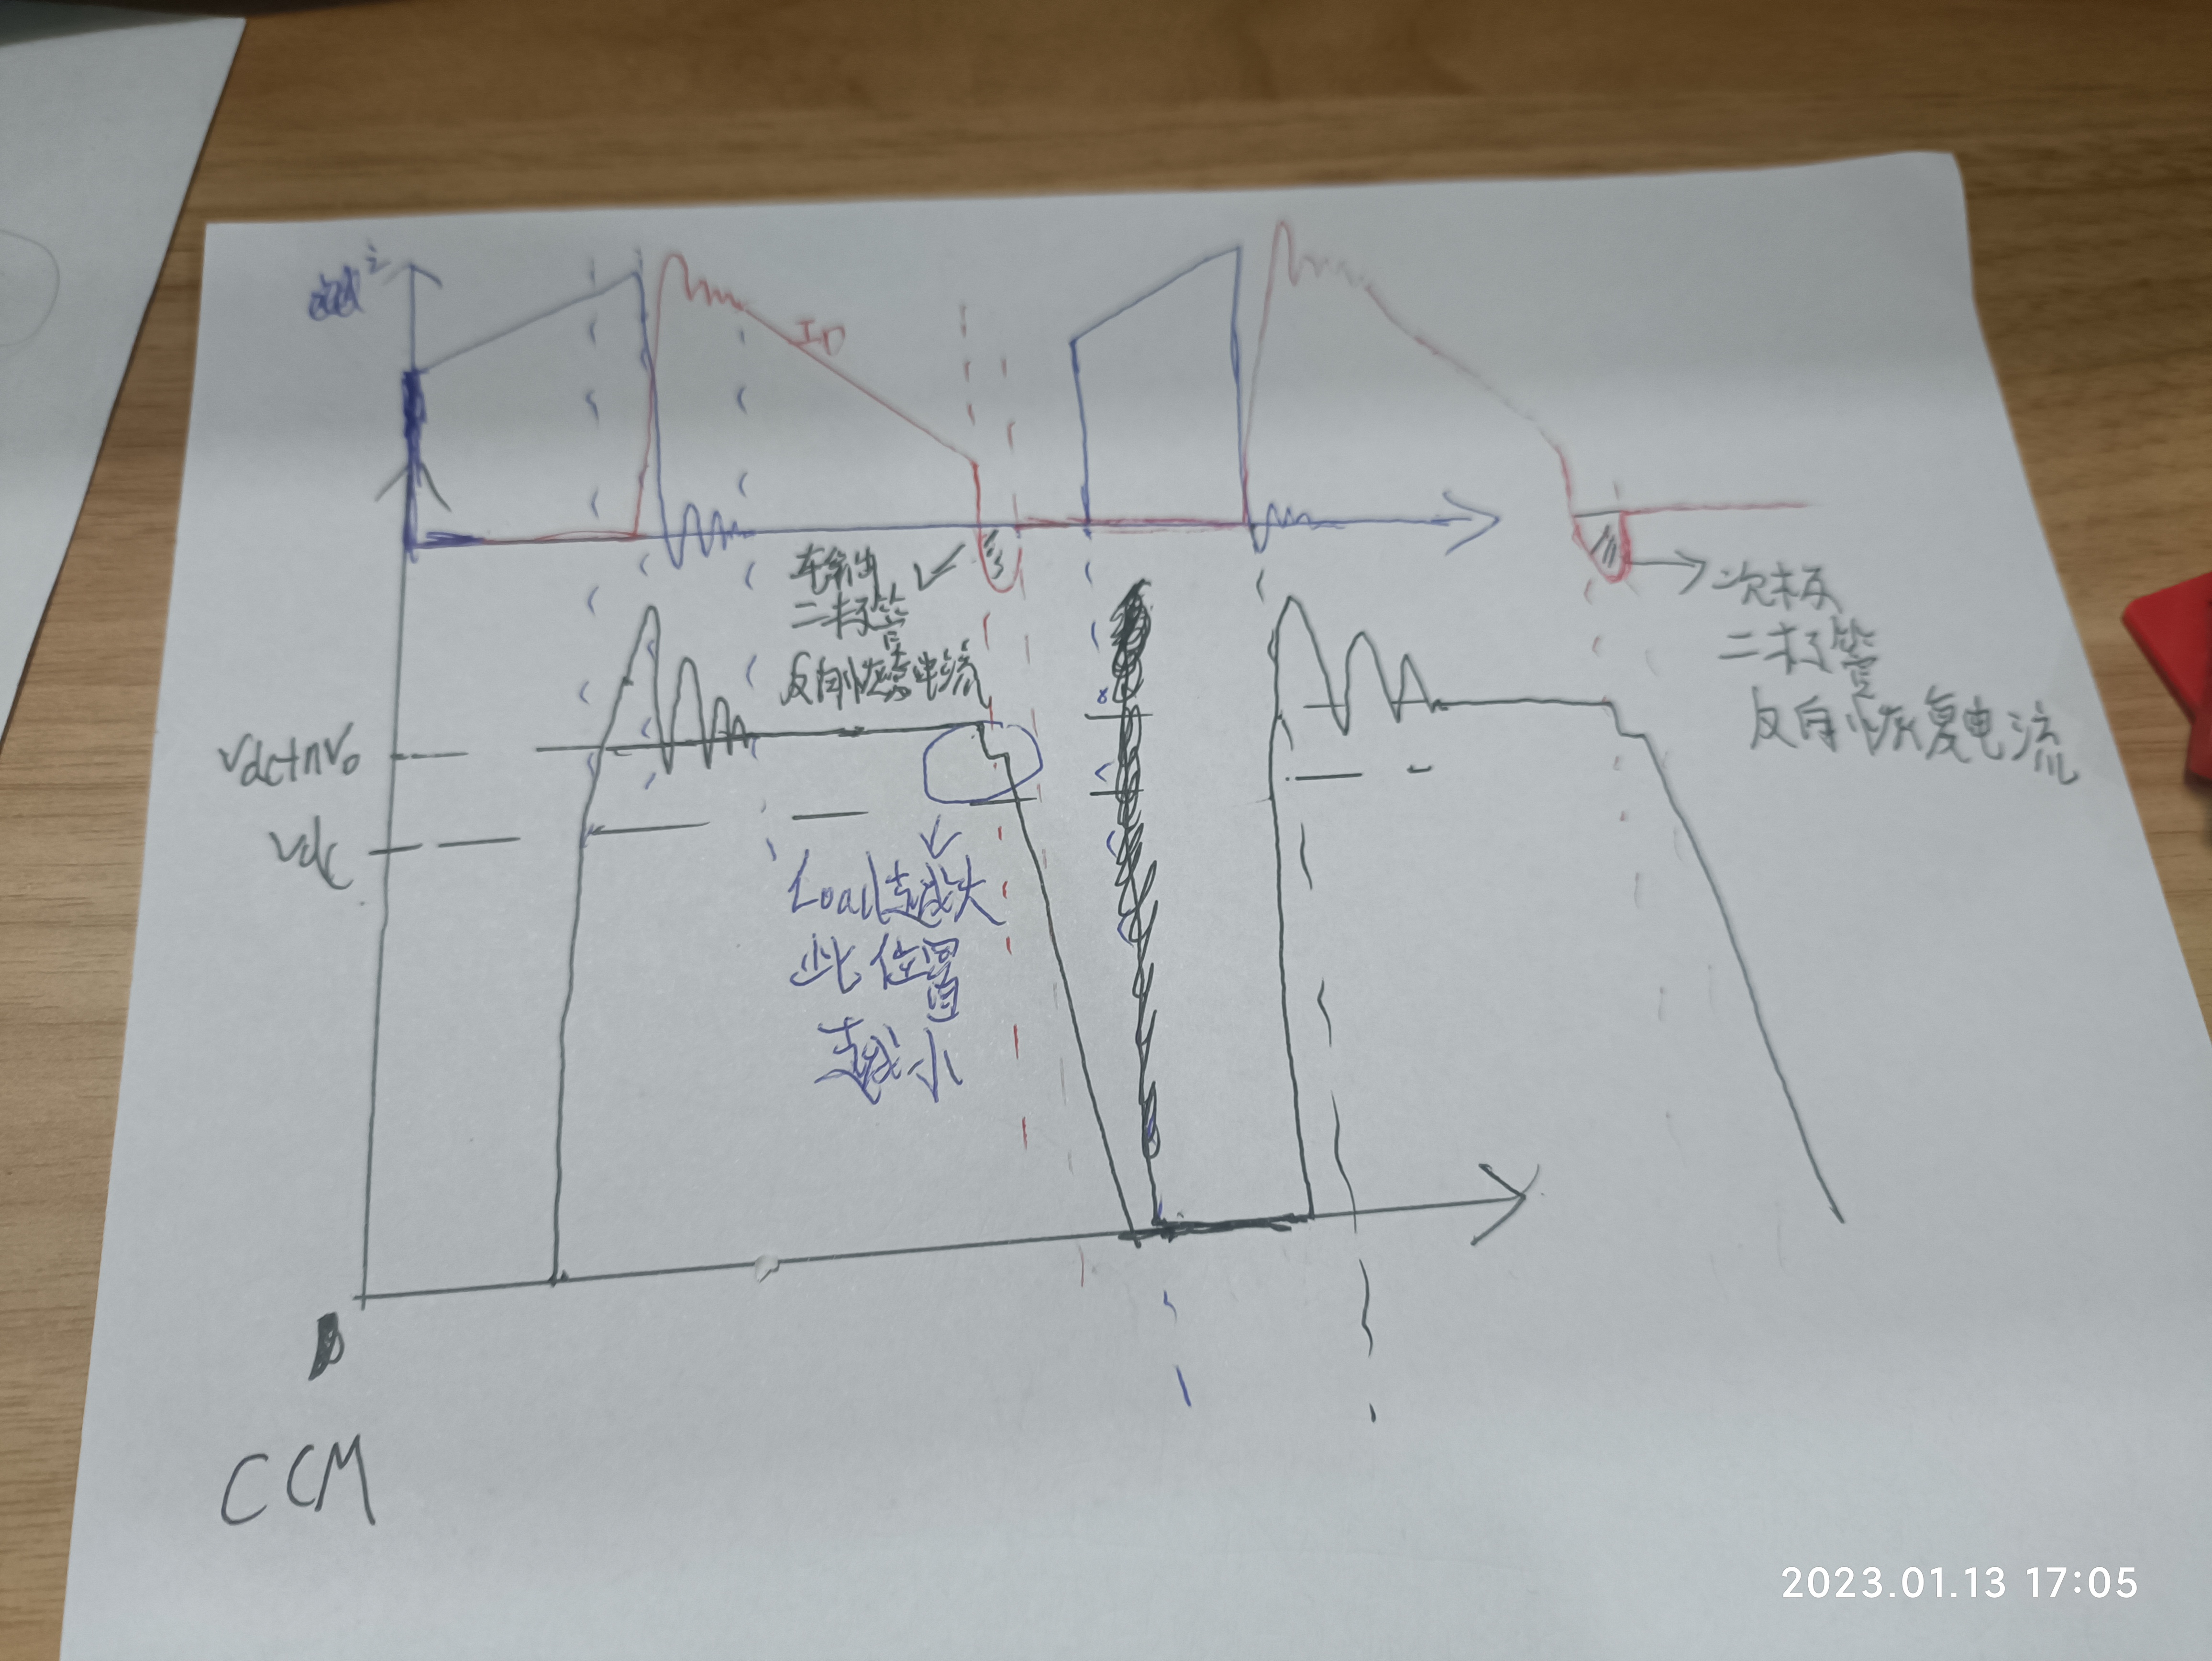 i
ID
输出
二极管
反向恢复电流
次极
二极管
反向恢复电流
Vdc+nVo
Vdc
Load越大
此位置
越小
CCM
2023.01.13 17:05